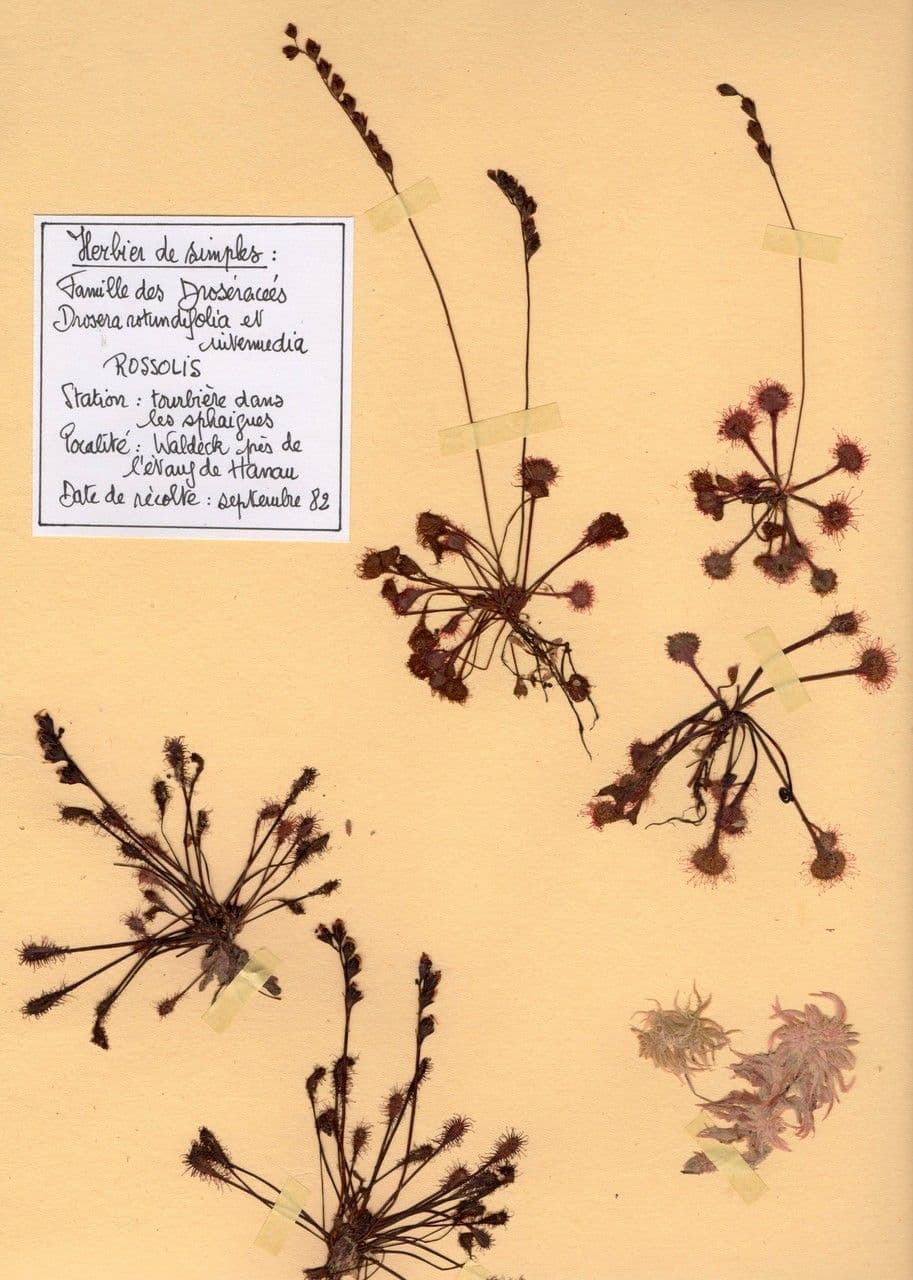 Herbier de simples :
Famille des Droséracées
Drosera rotundifolia et
intermedia
ROSSOLIS
Station : tourbière dans
les sphaignes
Localité : Waldeck près de
l'étang de Hanau
Date de récolte : septembre 82